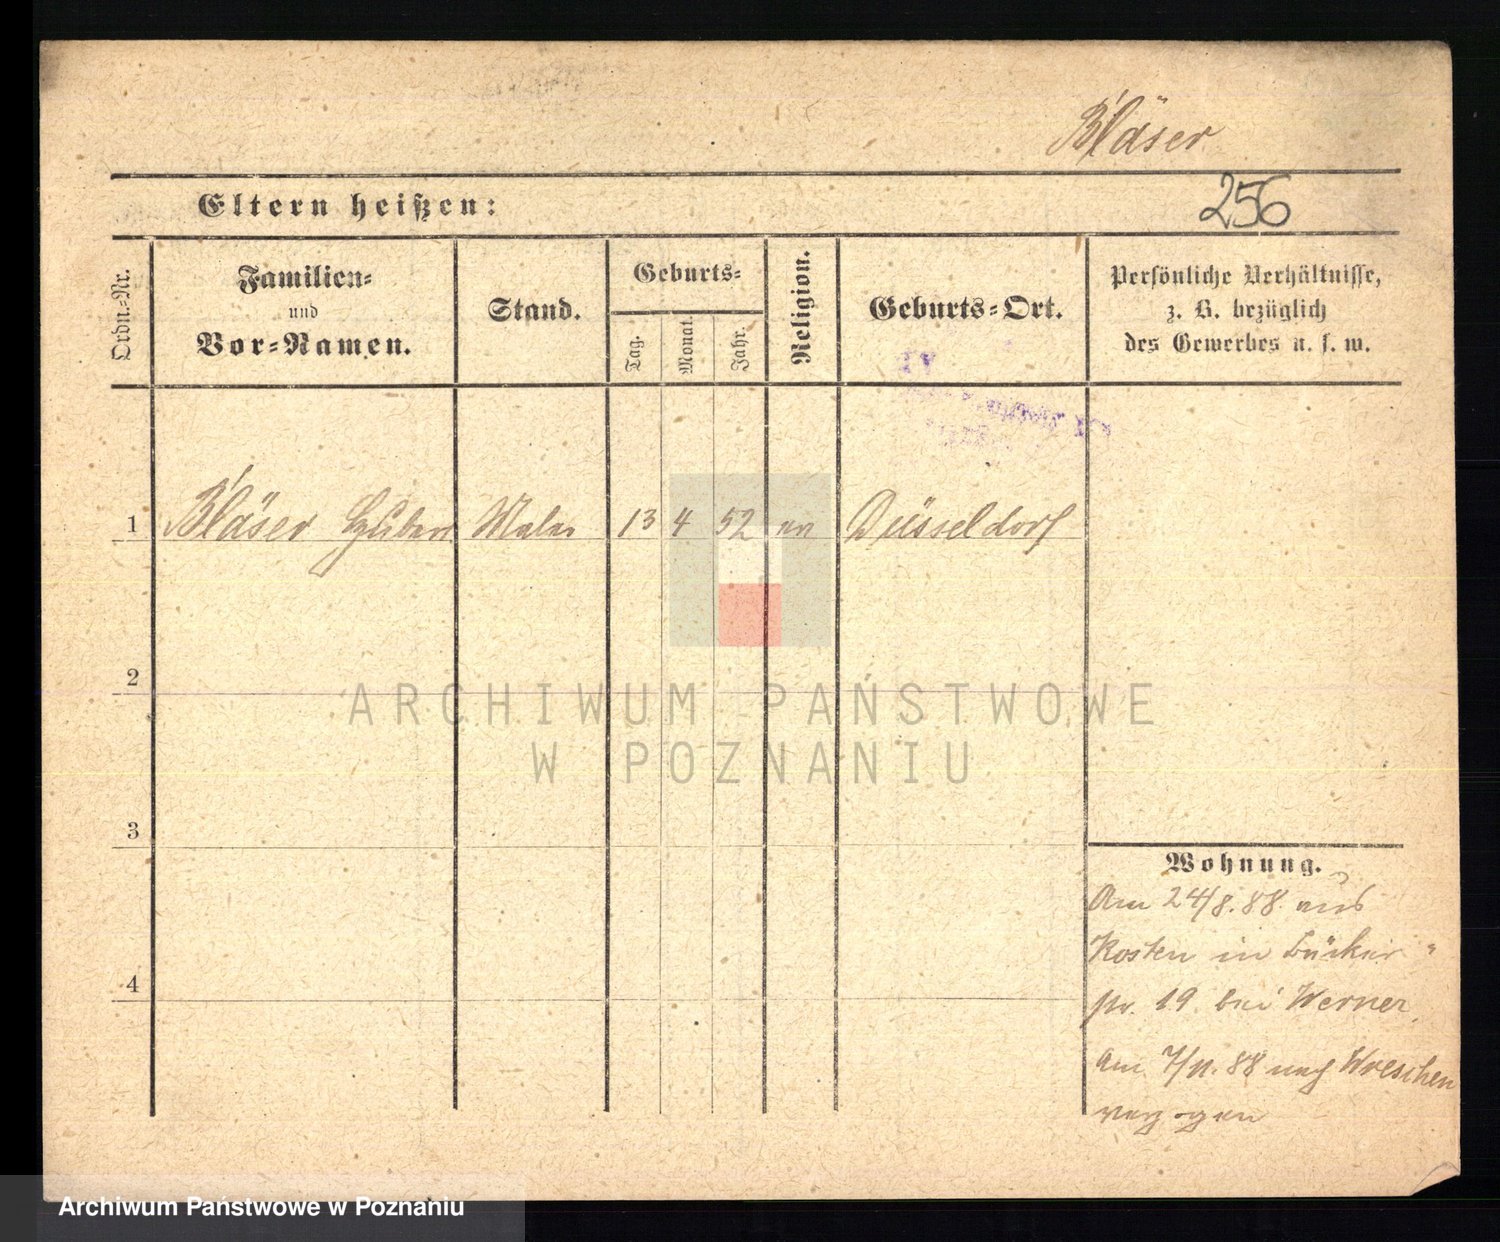 Bläser
Eltern heißen:
256
Ordn.-Nr.
Familien-
und
Vor-Namen.
Stand.
Geburts-
Tag.
Monat.
Jahr.
Religion.
Geburts-Ort.
Persönliche Verhältnisse,
z. B. bezüglich
des Gewerbes u. s. w.
1 Bläser Hubert Maler 13 4 52 ev Düsseldorf
2
ARCHIWUM PAŃSTWOWE
W POZNANIU
3
Wohnung.
Am 24/8. 88 aus
Kosten in
19 bei Werner
Am 7/11. 88 nach Wreschen
verzogen
4
Archiwum Państwowe w Poznaniu